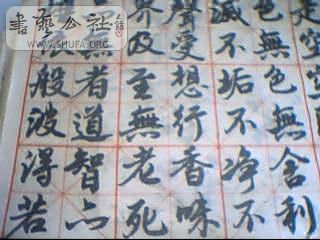 書藝公社
WWW.SHUFA.ORG
色無色無舍利
滅不垢不净不
聲受想行香味
界及至無老死
者道智亦
般波得若